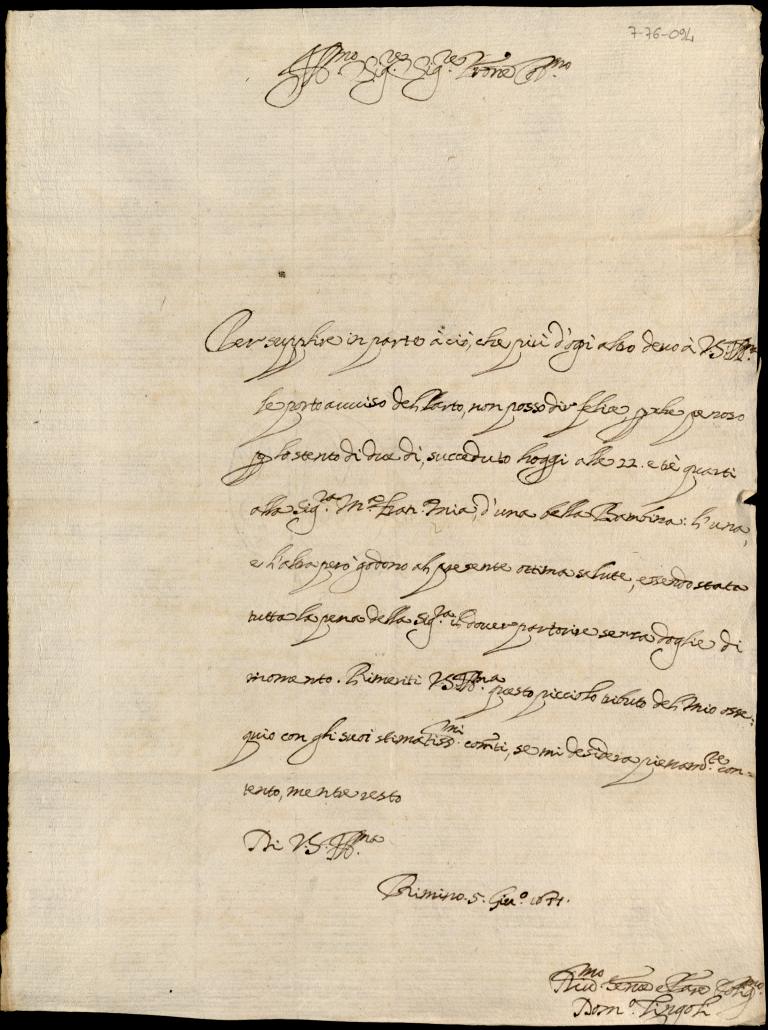 7-76-094
Ill.mo Sig.re Sig.re P'rone Coll.mo
Per supplire in parte à ciò, che più d'ogi altro devo à V.S. Ill.ma
le porto avviso del Parto, non posso dir felice, p'che penoso
p lo stento di due dì, succeduto hoggi alle 22. e trè quarti
alla Sig.ra M.a Fran.a mia, d'una bella Bambina: l'una,
e l'altra però godono al presente ottima salute, essendo stata
tutta la pena della Sig.ra il dover partorire senza doglie di
momento. Rimeriti V.S. Ill.ma questo picciolo tributo del mio osse=
quio con gli suoi stimatiss.mi com'ti, se mi desidera pienam.te con=
tento, mentre resto
Di V.S. Ill.ma
Rimino. 5. Giu.o
Ser.e e Par.e
Dom.o Pingoli